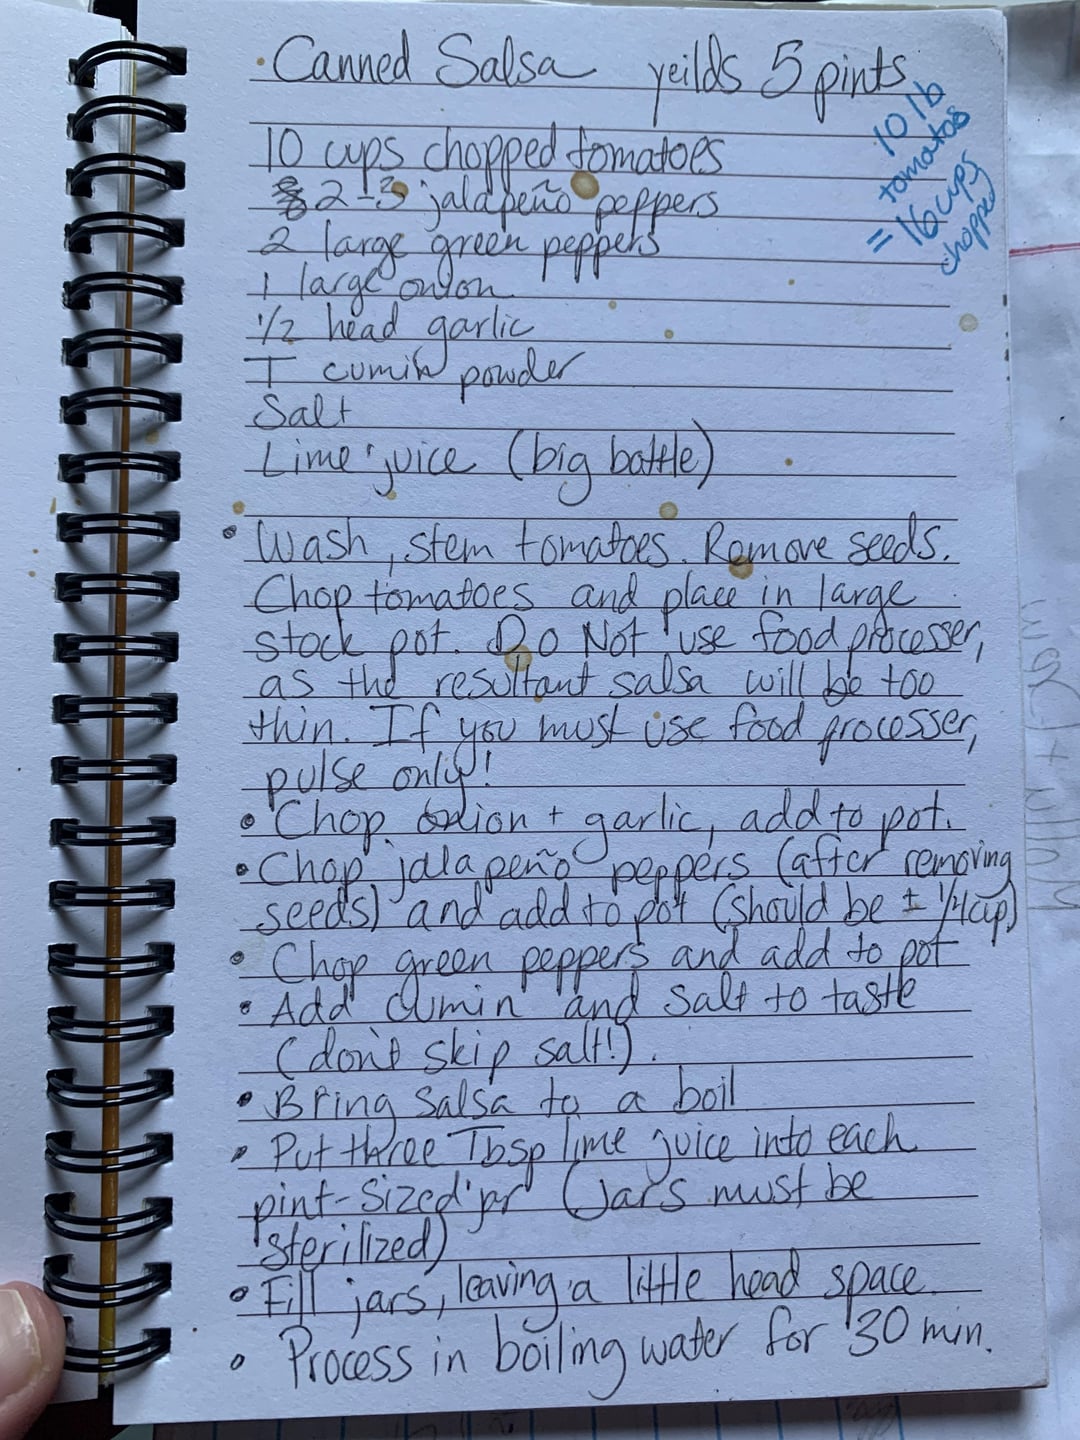 Canned Salsa yeilds 5 pints
10 lb
tomatos
= 16 cups
chopped
10 cups chopped tomatoes
2-3 jalapeño peppers
2 large green peppers
1 large onion
1/2 head garlic
T cumin powder
Salt
Lime juice (big bottle)
• Wash, stem tomatoes. Remove seeds.
Chop tomatoes and place in large
stock pot. Do Not use food processer,
as the resultant salsa will be too
thin. If you must use food processer,
pulse only!
• Chop onion + garlic, add to pot.
• Chop jalapeño peppers (after removing
seeds) and add to pot (should be ± 1/4 cup)
• Chop green peppers and add to pot
• Add cumin and salt to taste
(don't skip salt!).
• Bring salsa to a boil
• Put three Tbsp lime juice into each
pint-sized jar (Jars must be
sterilized)
• Fill jars, leaving a little head space.
• Process in boiling water for 30 min.